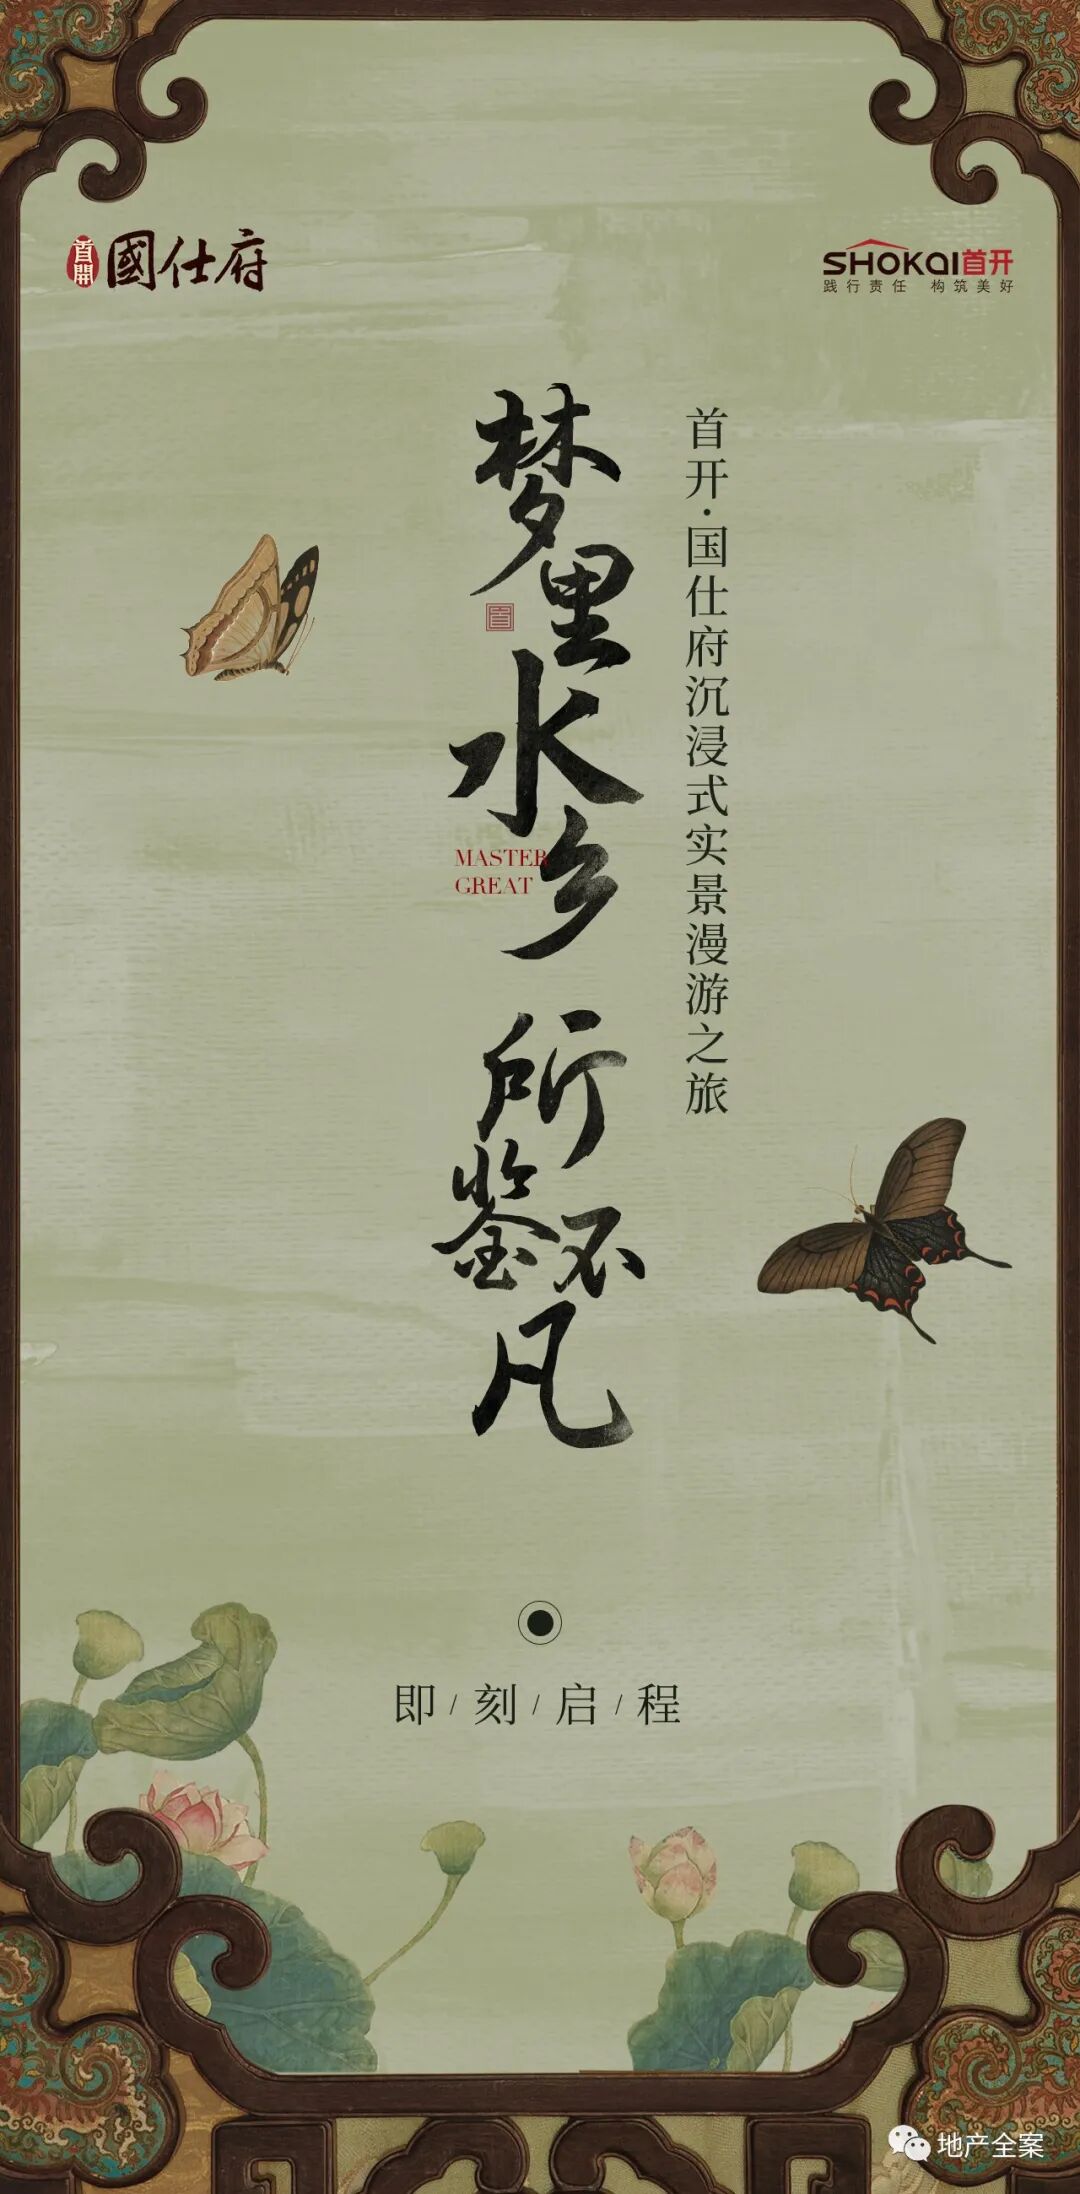 首開 國仕府
SHOKAI首开
践行责任 构筑美好
首开·国仕府沉浸式实景漫游之旅
梦里水乡 所鉴不凡
MASTER
GREAT
即/刻/启/程
地产全案